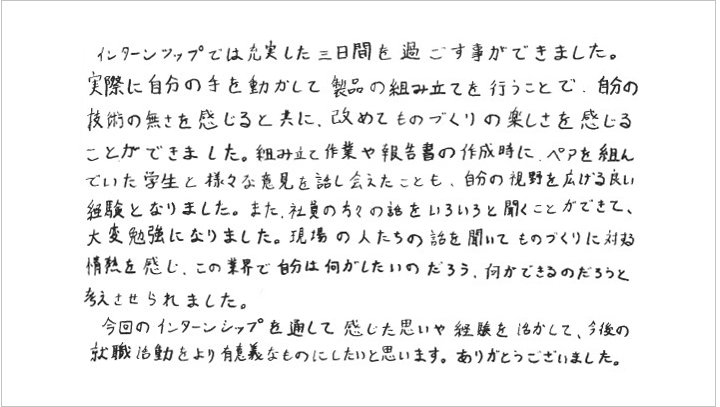 インターンシップでは充実した三日間を過ごす事ができました。
実際に自分の手を動かして製品の組み立てを行うことで、自分の
技術の無さを感じると共に、改めてものづくりの楽しさを感じる
ことができました。組み立て作業や報告書の作成時に、ペアを組ん
でいた学生と様々な意見を話し会えたことも、自分の視野を広げる良い
経験となりました。また、社員の方々の話をいろいろと聞くことができて、
大変勉強になりました。現場の人たちの話を聞いてものづくりに対する
情熱を感じ、この業界で自分は何がしたいのだろう、何ができるのだろうと
考えさせられました。
今回のインターンシップを通して感じた思いや経験を活かして、今後の
就職活動をより有意義なものにしたいと思います。ありがとうございました。